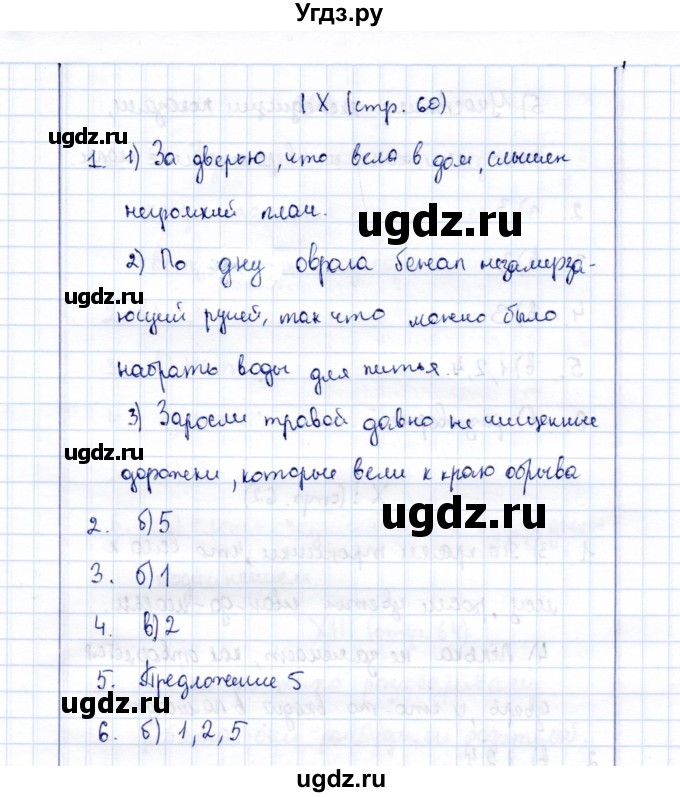 Угдз.ру
IX (стр. 60)
1. 1) За дверью, что вела в дом, слышен
негромкий плач.
2) По дну оврага бежал незамерза-
ющий ручей, так что можно было
набрать воды для питья.
3) Заросли травой давно не чищенные
дорожки, которые вели к краю обрыва
2. б) 5
3. б) 1
4. в) 2
5. Предложение 5
6. б) 1, 2, 5
ugdz.ru
ugdz.ru
ugdz.ru
ugdz.ru
ugdz.ru
ugdz.ru
ugdz.ru
ugdz.ru